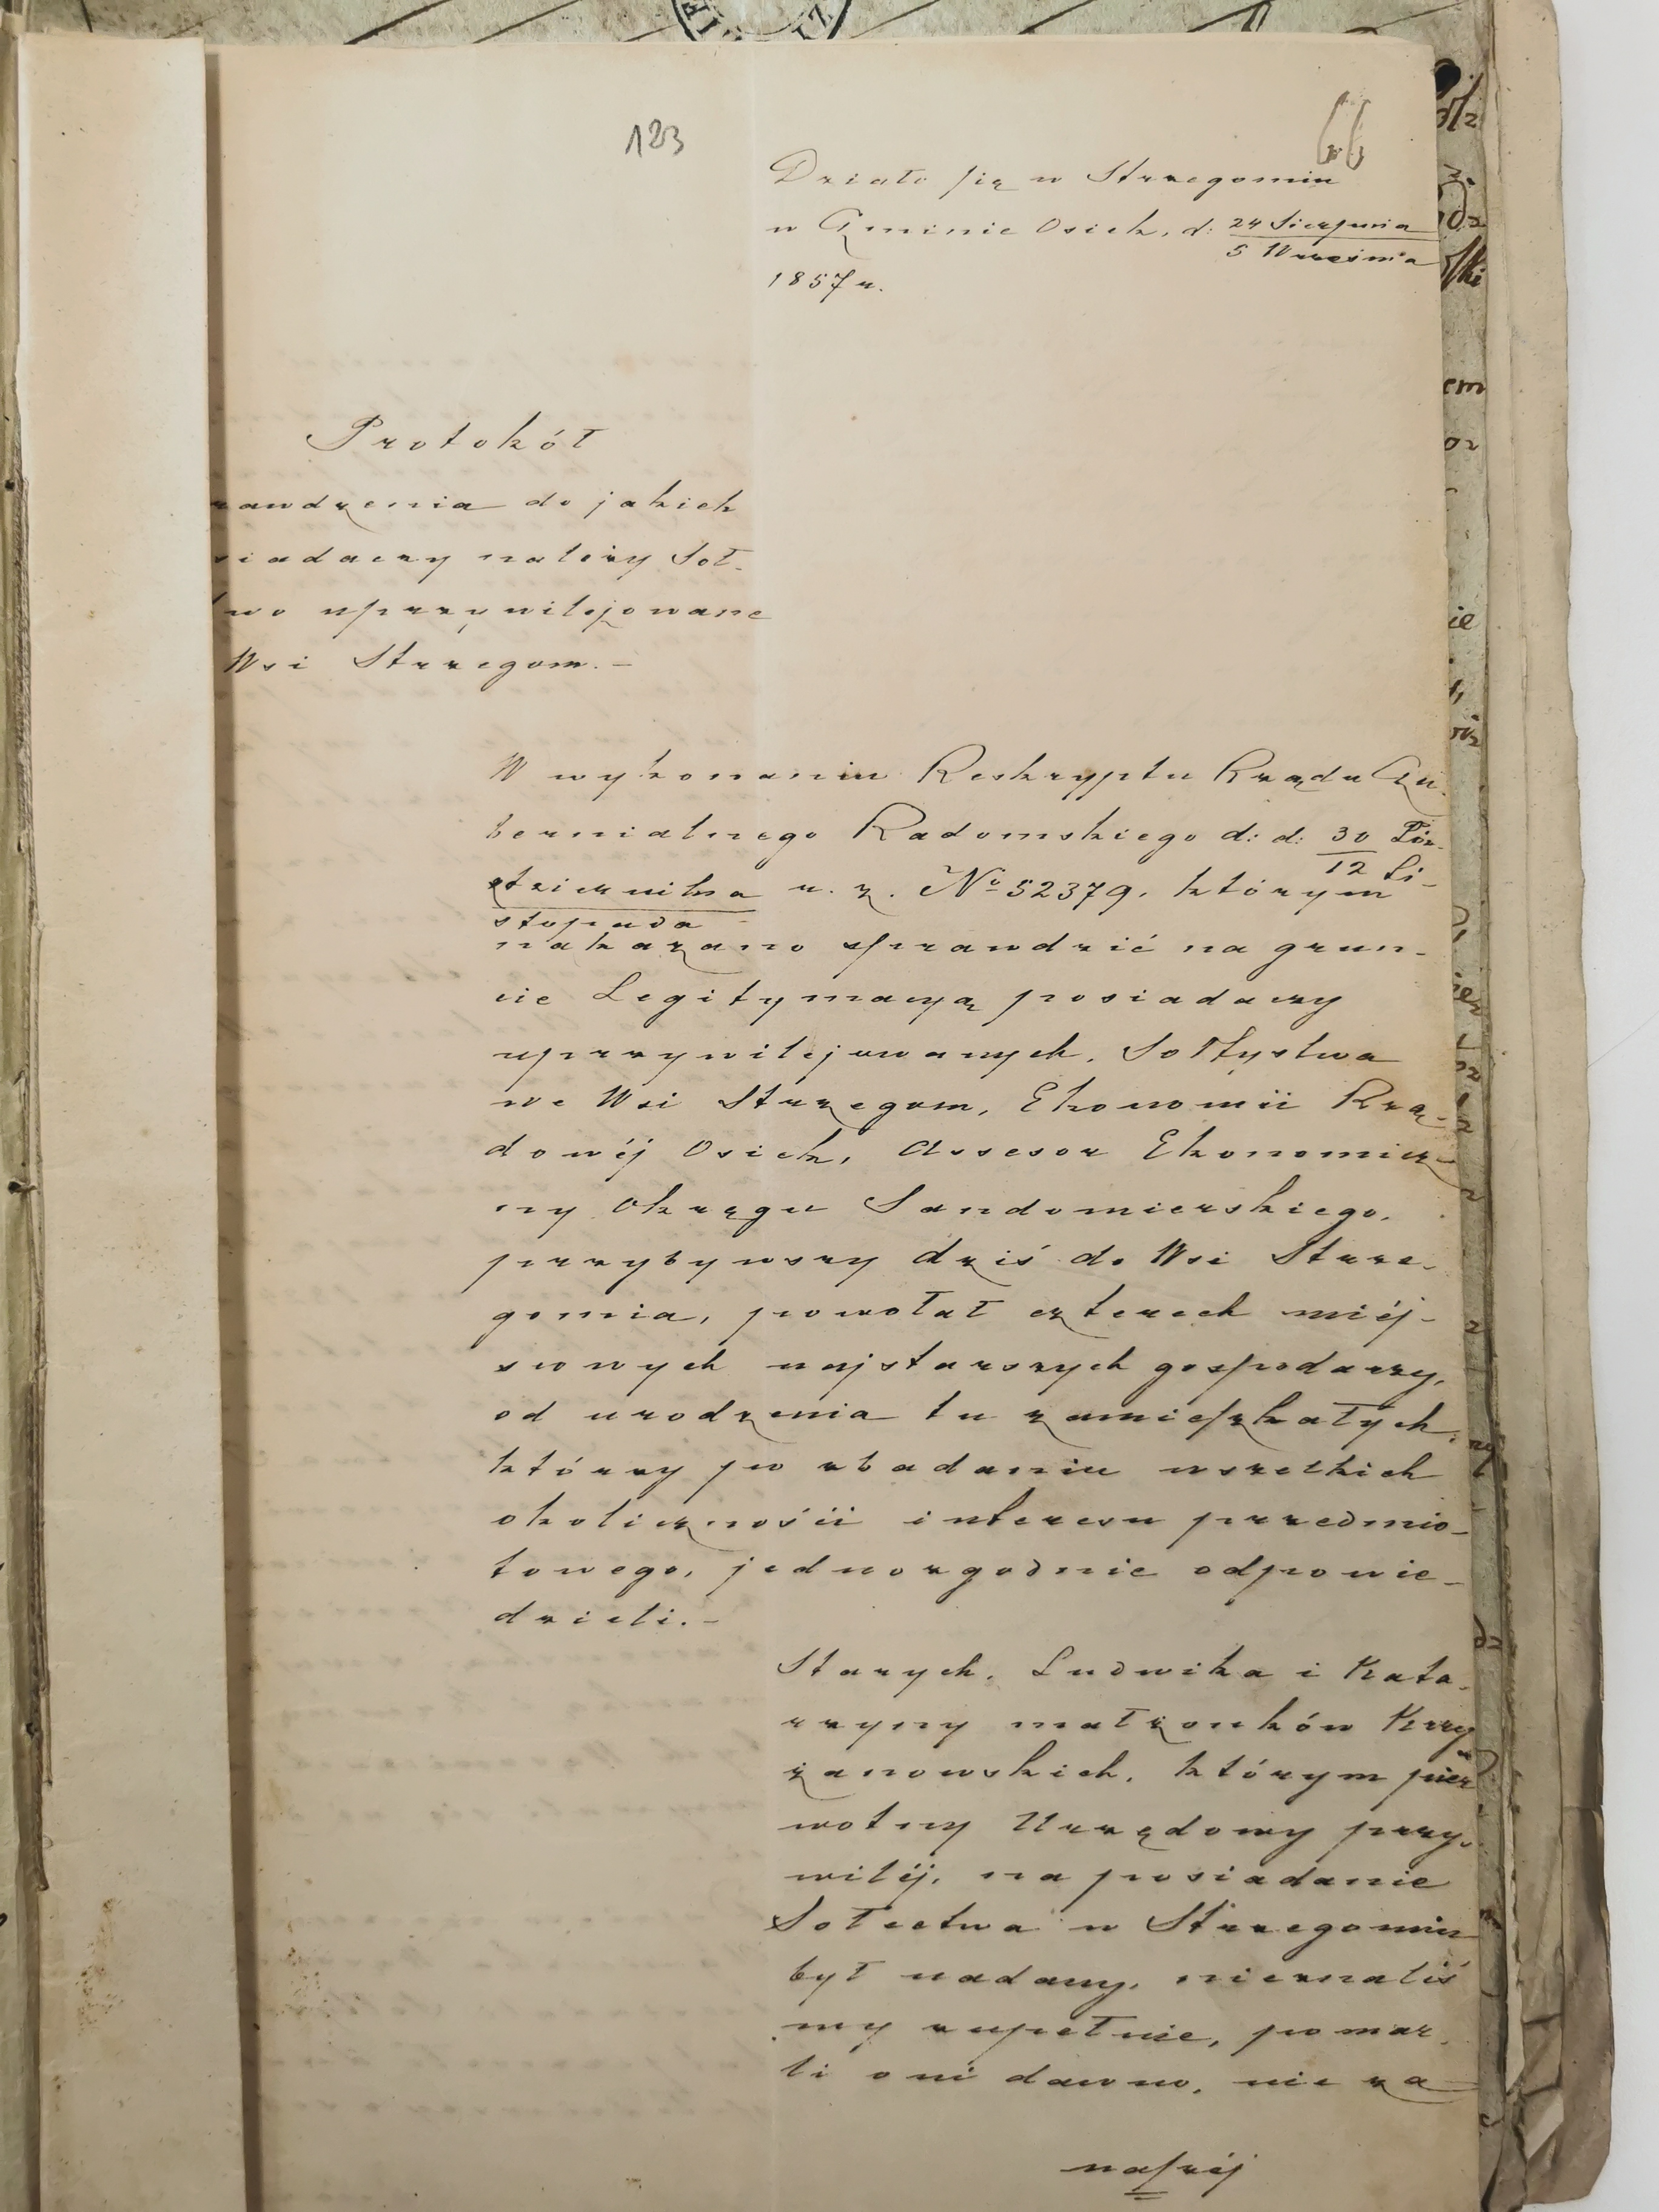 123
66
Działo się w Strzegomiu
w Gminie Osiek, d: 24 Sierpnia
5 Września
1857 r.
Protokół
rawdzenia do jakich
siadaczy należy Soł-
two uprzywilejowane
Wsi Strzegom. –
W wykonaniu Reskryptu Rządu Gu-
bernialnego Radomskiego d: d: 30 Paź-
12 Li-
dziernika r. z. No 52379, którym
stopada
nakazano sprawdzić na grun-
cie Legitymacyą posiadaczy
uprzywilejowanych, Sołtystwa
we Wsi Strzegom, Ekonomii Rzą-
dowéj Osiek, Assesor Ekonomicz-
ny Okręgu Sandomierskiego,
przybywszy dziś do Wsi Strze-
gomia, powołał czterech miéj-
scowych najstarszych gospodarzy,
od urodzenia tu zamieszkałych,
którzy po zbadaniu wszelkich
okoliczności interesu przedmio-
towego, jednozgodnie odpowie-
dzieli. –
Starych, Ludwika i Kata-
rzyny małżonków Krzy
żanowskich, którym pier
wotny Urzędowy przy-
wiléj, na posiadanie
Sołectwa w Strzegomiu
był nadany, nieznaliś
my zupełnie, pomar-
li oni dawno, nie za
naszéj